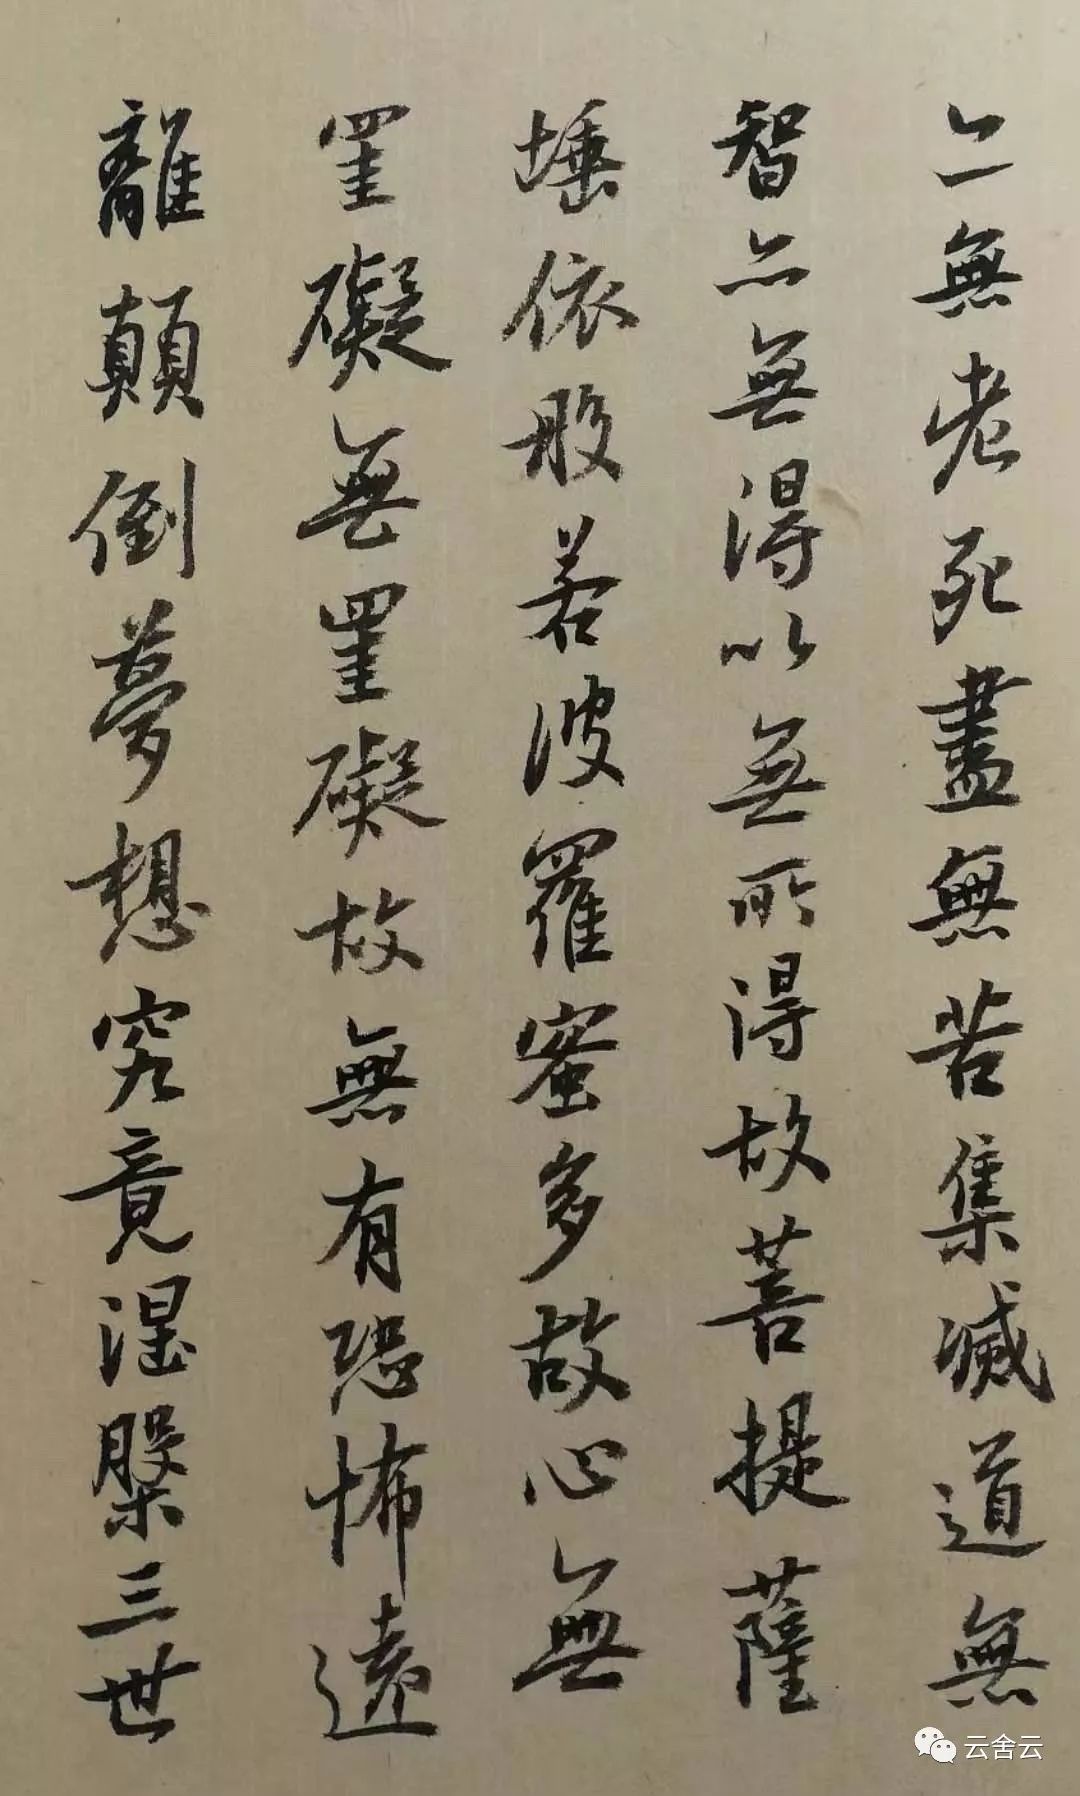 亦無老死盡無苦集滅道無
智亦無得以無所得故菩提薩
埵依般若波羅蜜多故心無
罣礙無罣礙故無有恐怖遠
離顛倒夢想究竟涅槃三世
云舍云